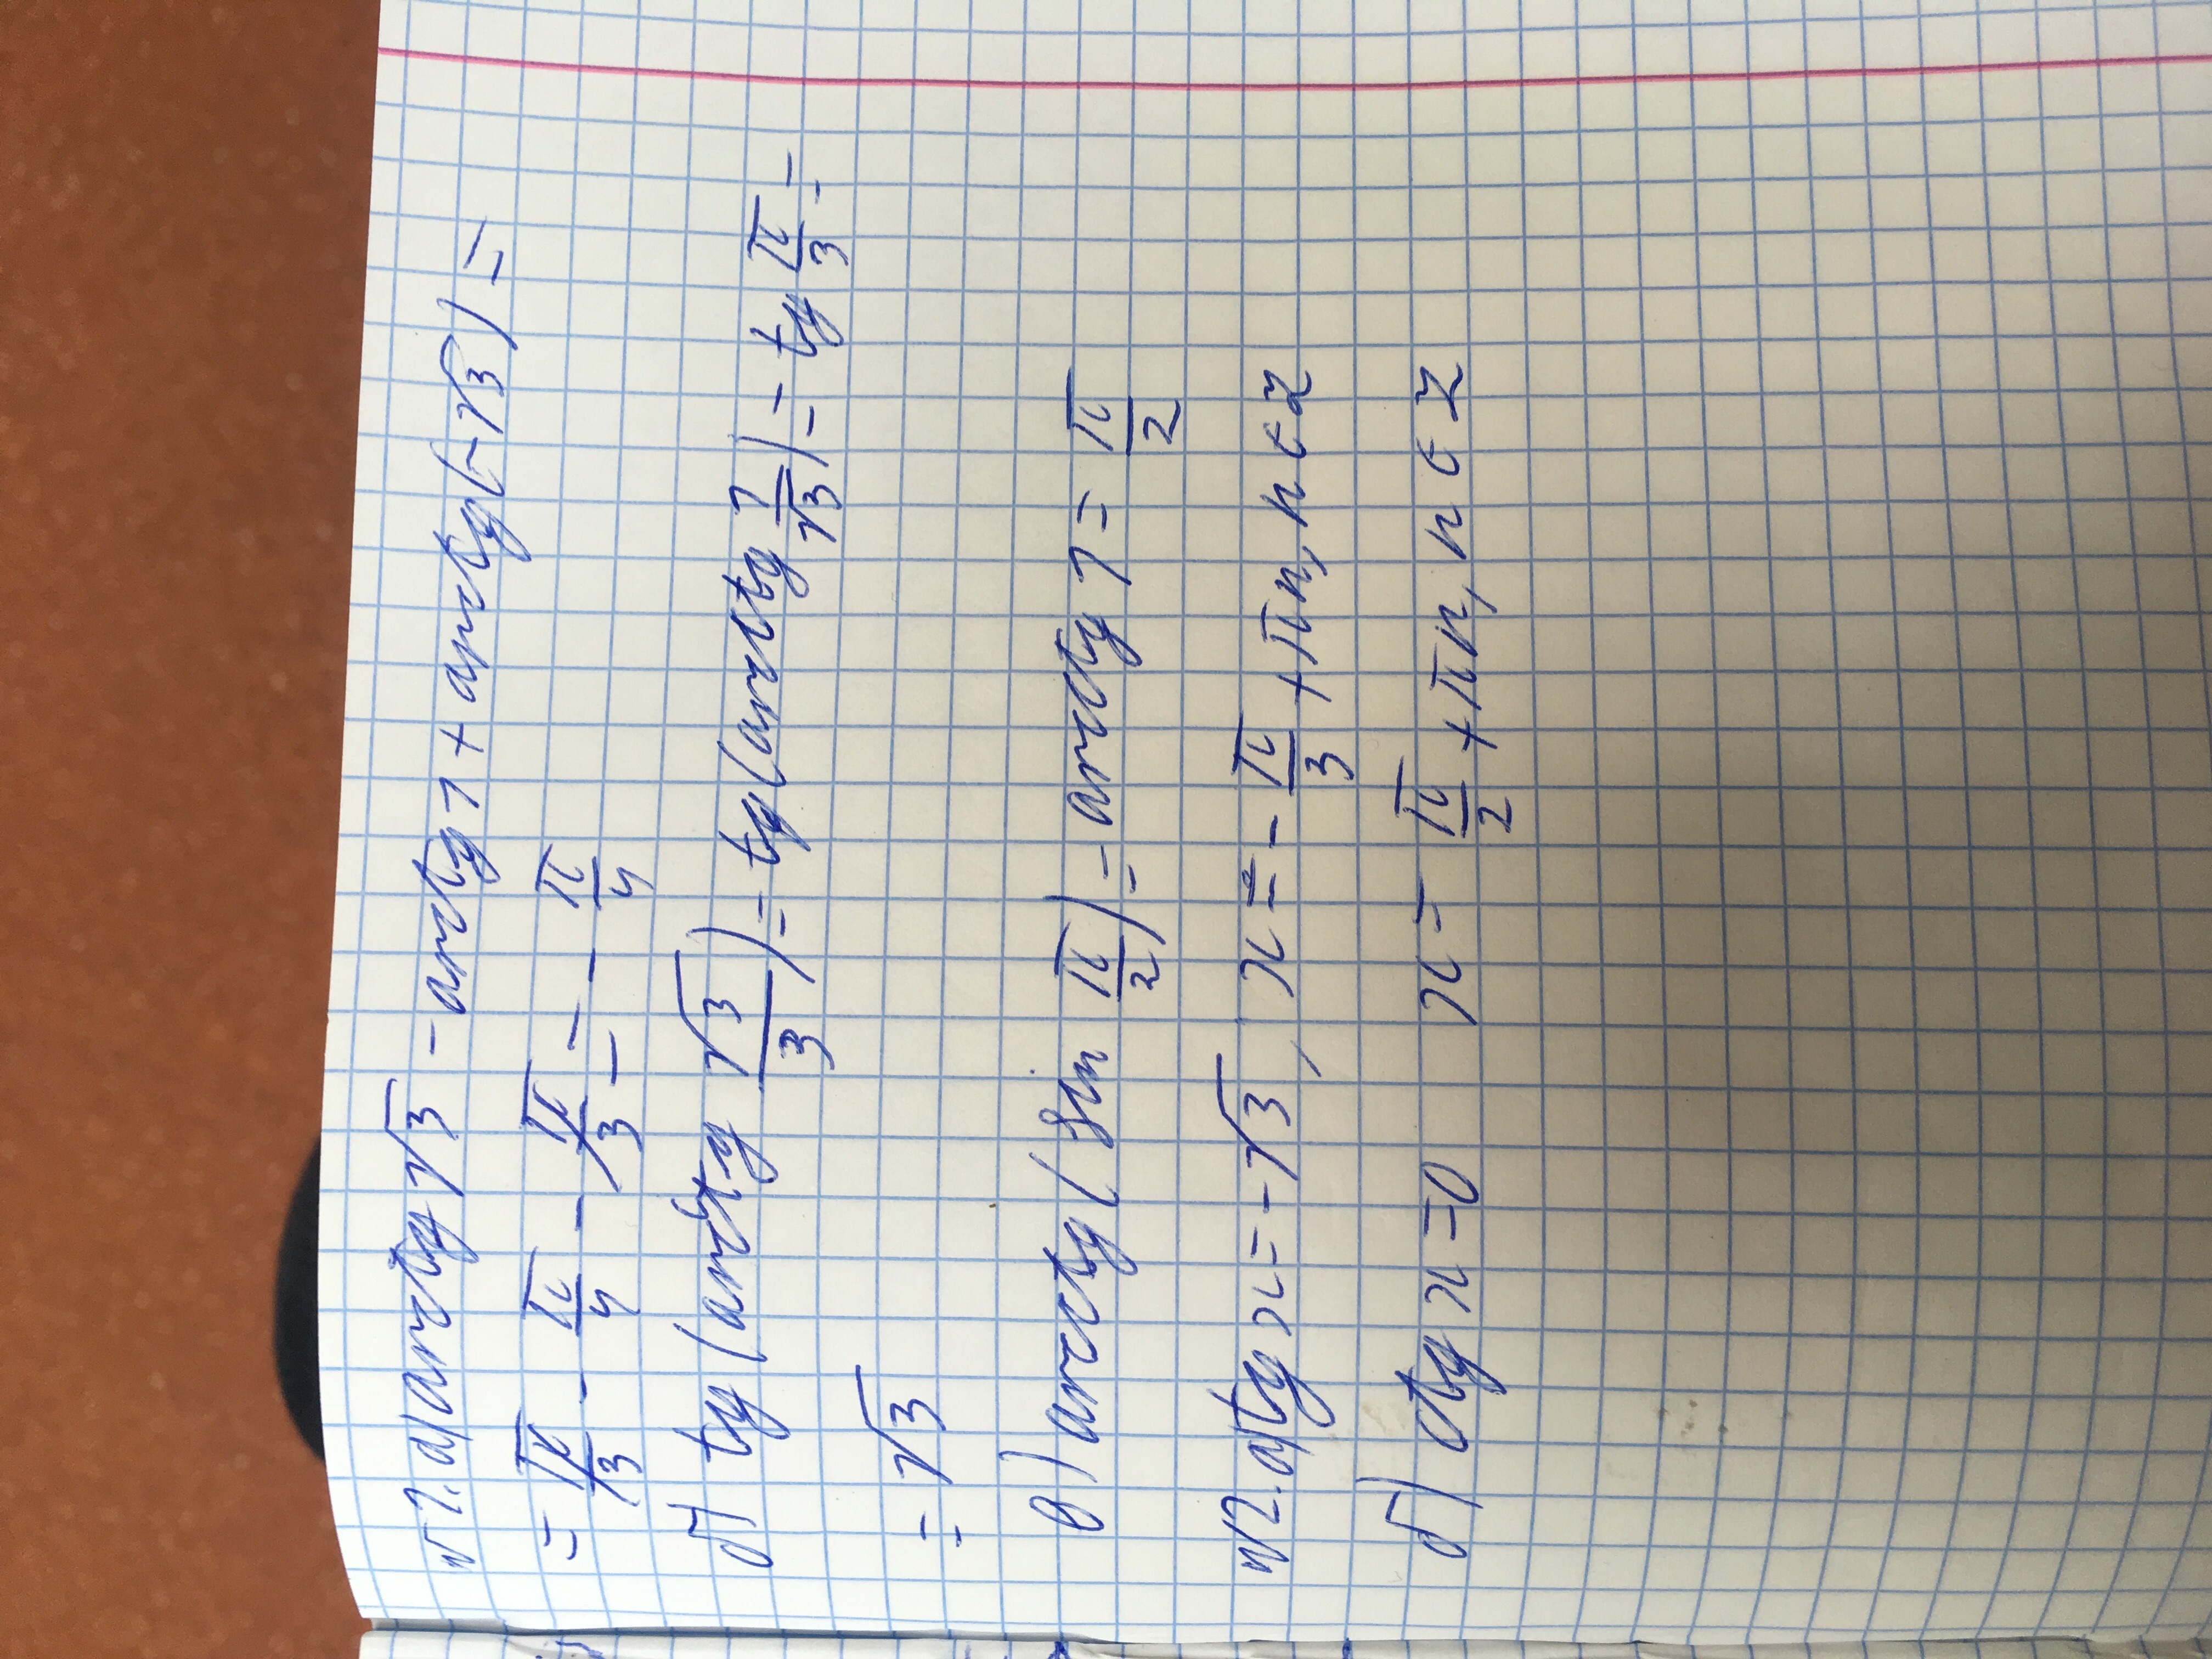 №1. а) arctg √3 - arctg 1 + arctg(-√3) =
= π/3 - π/4 - π/3 = - π/4
б) tg (arcctg √3/3) = tg (arcctg 1/√3) = tg π/3 =
= √3
в) arcctg (sin π/2) = arcctg 1 = π/2
№2. а) tg x = -√3, x = - π/3 + πn, n ∈ Z
б) ctg x = 0 x = π/2 + πn, n ∈ Z